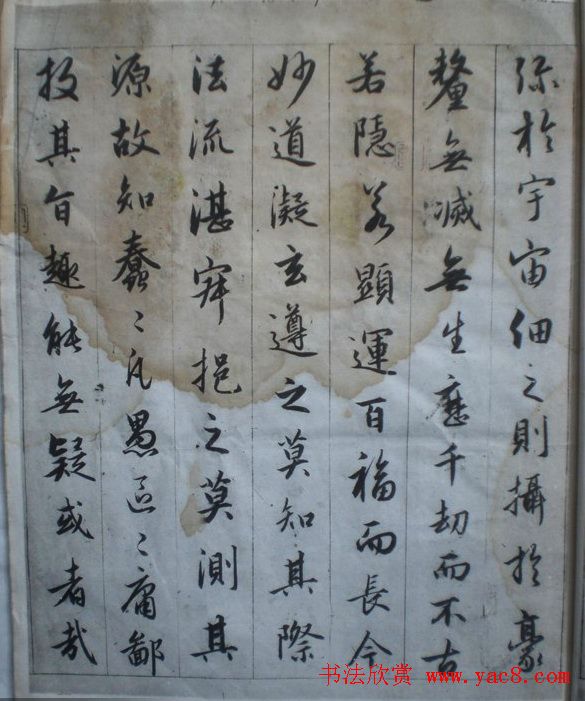 彌於宇宙細之則攝於豪
釐無滅無生歷千劫而不古
若隱若顯運百福而長今
妙道凝玄遵之莫知其際
法流湛寂挹之莫測其
源故知蠢〻凡愚區〻庸鄙
投其旨趣能無疑或者哉
书法欣赏 www.yac8.com